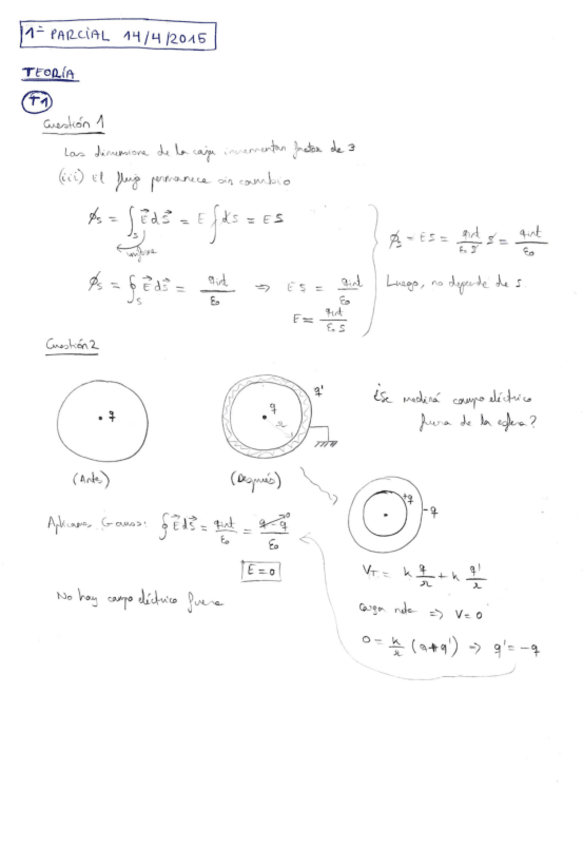 1º PARCIAL 14/4/2015
TEORÍA
T1
Cuestión 1
Las dimensione de la caja incrementan factor de 3
(iii) El flujo permanece sin cambio
ϕs = ∫s E⃗ dS⃗ = E ∫ dS = ES
ϕs = ∮s E⃗ dS⃗ = qint/ε0 ⇒ ES = qint/ε0
E = qint/ε0 S
ϕs = ES = qint/ε0 S S = qint/ε0
Luego, no depende de S
Cuestión 2
q
q
r
q'
¿Se medirá campo eléctrico
fuera de la esfera?
(Antes)
(Después)
+q
-q
Aplicamos Gauss: ∮ E⃗ dS⃗ = qint/ε0 = q - q/ε0
0
E = 0
No hay campo eléctrico fuera
VT = k q/r + k q'/r
carga neta ⇒ V = 0
0 = k/r (q + q') ⇒ q' = -q